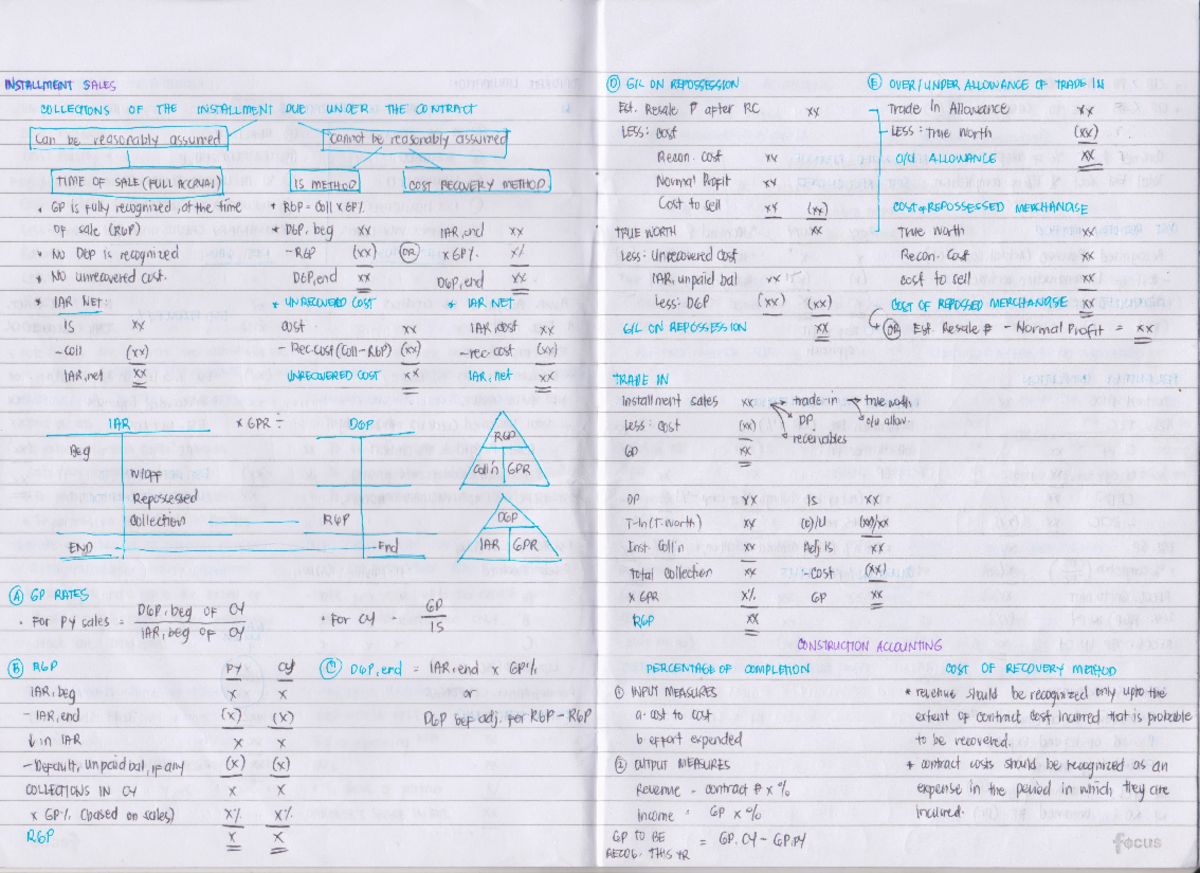 INSTALLMENT SALES
COLLECTIONS OF THE INSTALLMENT DUE UNDER THE CONTRACT
Can be reasonably assumed
cannot be reasonably assumed
TIME OF SALE (FULL ACCRUAL)
IS METHOD
COST RECOVERY METHOD
• GP is fully recognized, at the time
of sale (RGP)
• NO DGP is recognized
• NO unrecovered cost.
• IAR NET:
IS xx
- coll (xx)
IAR, net xx
* RGP = Coll x GP%
* DGP, beg xx
- RGP (xx)
DGP, end xx
OR
IAR, end xx
x GP% x%
DGP, end xx
* UNRECOVERED COST
cost xx
- Rec. cost (Coll - RGP) (xx)
UNRECOVERED COST xx
* IAR NET
IAR, cost xx
- rec. cost (xx)
IAR, net xx
IAR x GPR = DGP
Beg
W/OFF
Repossessed
Collection RGP
END End
RGP
Coll'n GPR
DGP
IAR GPR
Ⓐ GP RATES
• For PY sales = DGP, beg OF CY
IAR, beg OF CY
* For CY GP
IS
Ⓑ RGP PY CY
IAR, beg x x
- IAR, end (x) (x)
↓ in IAR x x
- Default, unpaid bal, if any (x) (x)
COLLECTIONS IN CY x x
x GP% (based on sales) x% x%
RGP x x
Ⓒ DGP, end = IAR, end x GP%
or
DGP bef adj. per RGP - RGP
Ⓓ G/L ON REPOSSESSION
Est. Resale P after RC xx
LESS: cost
Recon. cost xx
Normal Profit xx
Cost to sell xx (xx)
TRUE WORTH xx
Less: Unrecovered Cost
IAR, unpaid bal xx
Less: DGP (xx) (xx)
G/L ON REPOSSESSION xx
Ⓔ OVER/UNDER ALLOWANCE OF TRADE IN
Trade In Allowance xx
LESS: True worth (xx)
O/U ALLOWANCE xx
COST OF REPOSSESSED MERCHANDISE
True worth xx
Recon. Cost xx
cost to sell xx
COST OF REPOSSED MERCHANDISE xx
OR Est. Resale P - Normal Profit = xx
TRADE IN
Installment sales xx trade-in → true worth
Less: Cost (xx) DP o/u allow.
GP xx receivables
DP xx
T-In (T. Worth) xx
Inst. Coll'n xx
Total Collection xx
x GPR x%
RGP xx
IS xx
(O)/U (xx)/xx
Adj. IS xx
- Cost (xx)
GP xx
CONSTRUCTION ACCOUNTING
PERCENTAGE OF COMPLETION
① INPUT MEASURES
a. cost to cost
b effort expended
② OUTPUT MEASURES
Revenue = contract P x %
Income = GP x %
GP TO BE
RECOG. THIS YR = GP. CY - GP. PY
COST OF RECOVERY METHOD
* revenue should be recognized only upto the
extent of contract cost incurred that is probable
to be recovered.
* contract costs should be recognized as an
expense in the period in which, they are
incurred.
focus